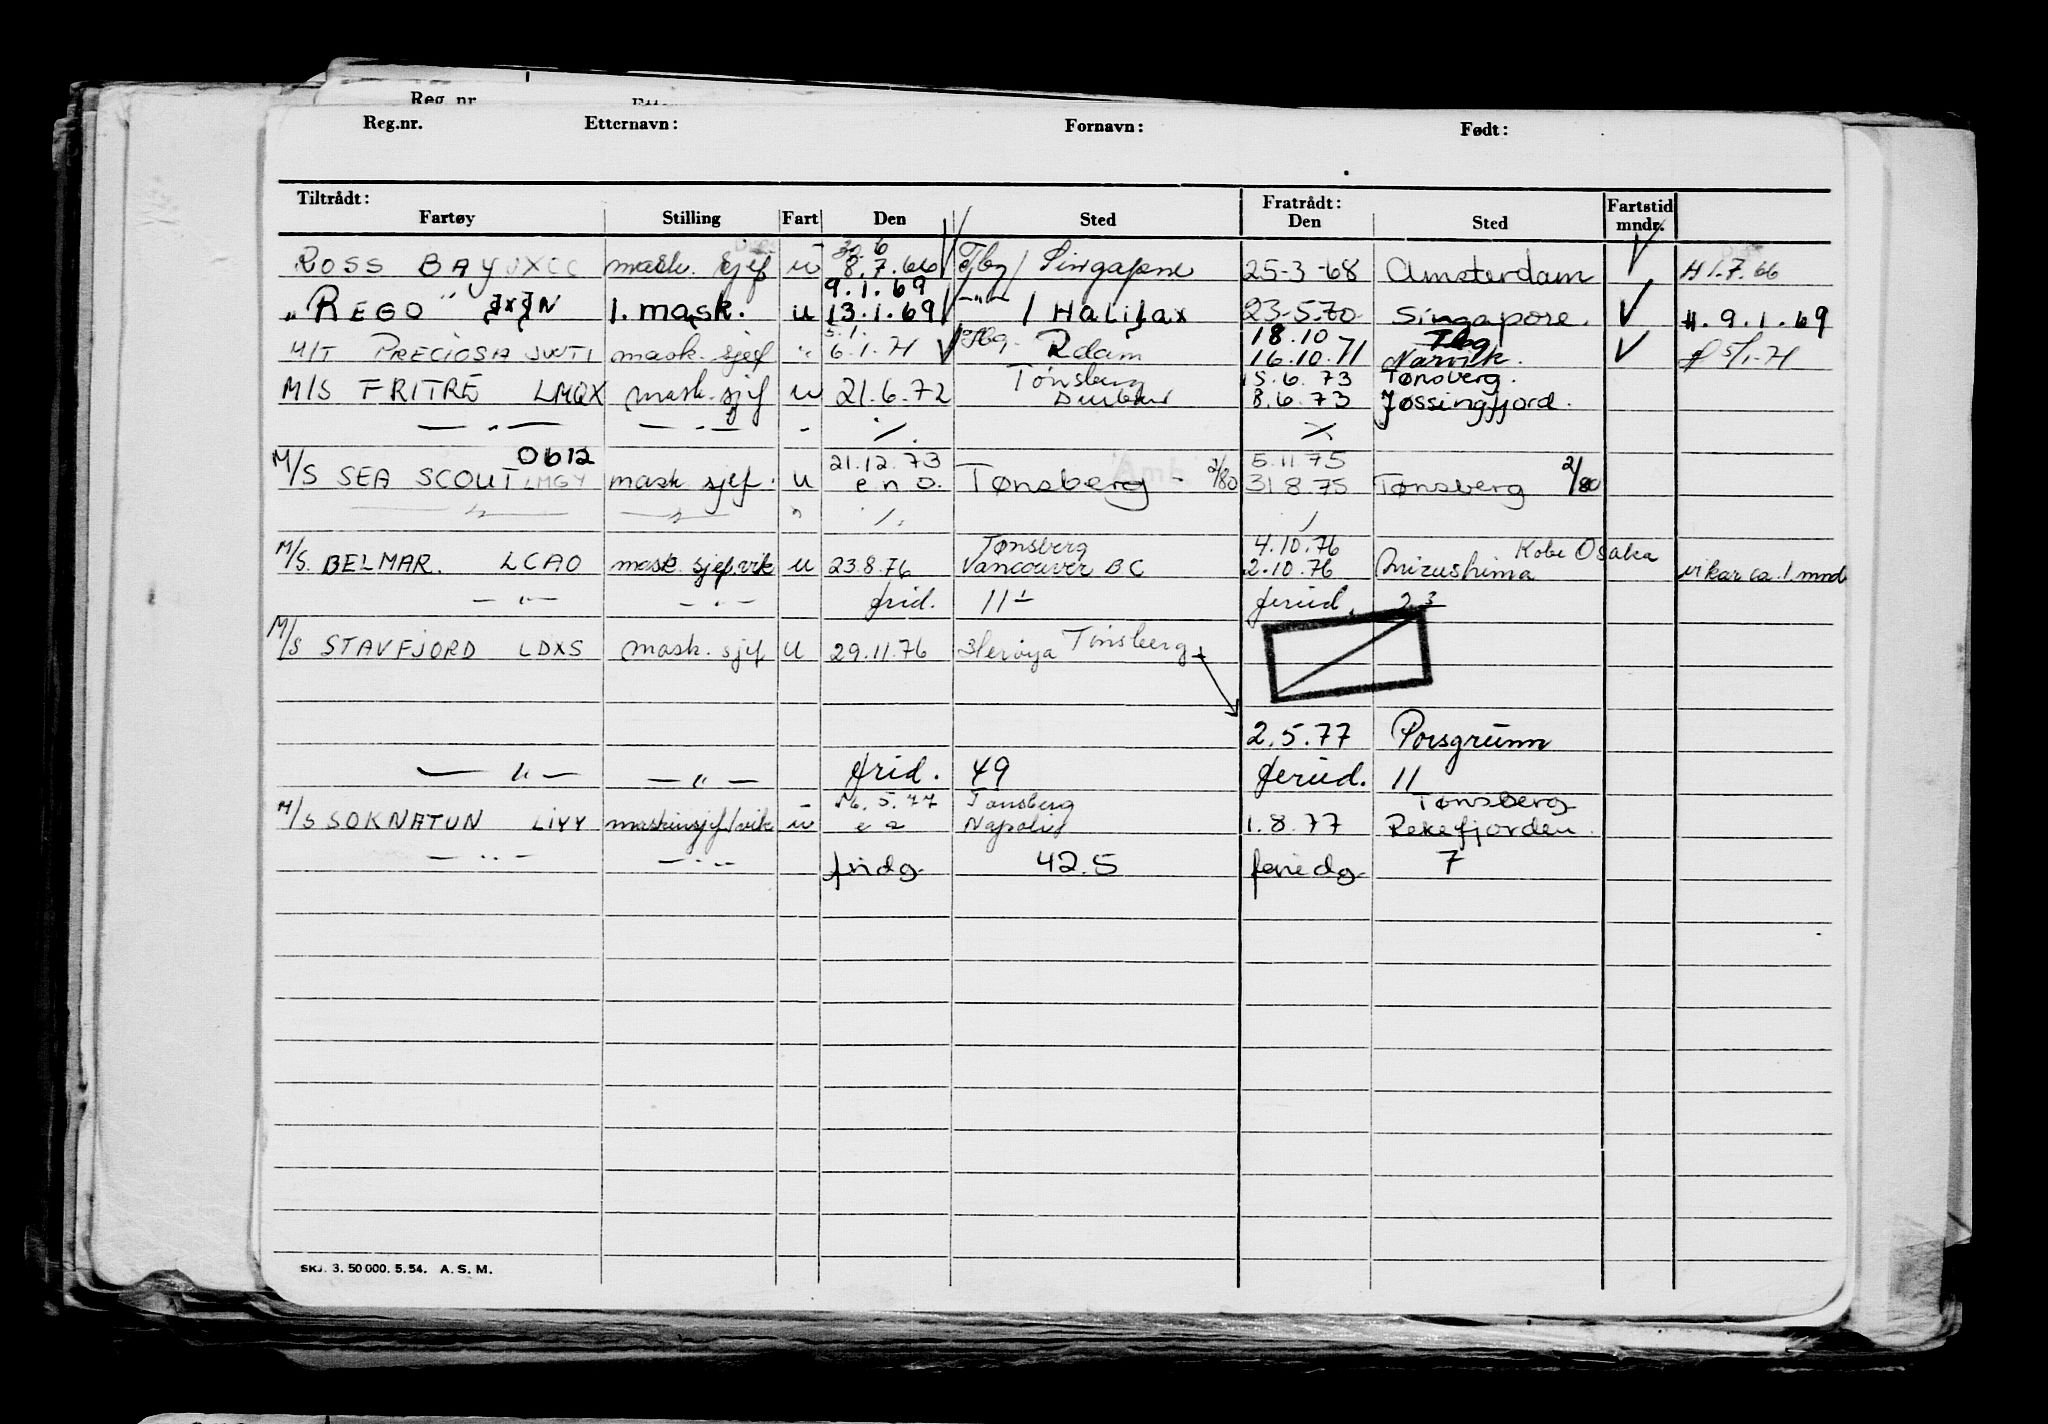 Reg. nr
Reg.nr. Etternavn: Fornavn: Født:
Tiltrådt: Fratrådt: Fartstid
Fartøy Stilling Fart Den Sted Den Sted mndr.
30.6
ROSS BAY JXCC mask. sjef u 8.7.66 Tbg / Singapore 25-3-68 Amsterdam H 1.7.66
9.1.69
"REGO" 1. mask. u 13.1.69 — " — / Halifax 23.5.70 Singapore. H. 9.1.69
5.1. 18.10 Tbg
M/T PRECIOSA JWTI mask. sjef " 6.1.71 Tbg. Rdam 16.10.71 Narvik. 5/1-71
Tønsberg 15.6.73 Tønsberg.
M/S FRITRE LMQX mask. sjef u 21.6.72 Durban 8.6.73 Jøssingfjord.
— " — — " — - ./. ./.
0612 21.12.73 5.11.75
M/S SEA SCOUT LMGY mask sjef. u e n o. Tønsberg - 2/80 31 8.75 Tønsberg 2/80
— " — — " — " ./. /
Tønsberg 4.10.76 Kobe Osaka
M/S. BELMAR. LCAO mask. sjef. vik u 23.8.76 Vancouver BC 2.10.76 Mizushima vikar ca. 1 mnd
— " — — " — frid. 11 feried. 2.3
M/S STAVFJORD LDXS mask. sjef u 29.11.76 Herøya Tønsberg
2.5.77 Porsgrunn
— " — — " — frid. 49 feried. 11
16.5.77 Tønsberg Tønsberg
M/S SOKNATUN LIYY maskinsjef/vik u e o Napoli 1.8.77 Rekefjorden.
— " — — " — fridg. 42.5 feriedg. 7
SKJ. 3. 50 000. 5. 54. A. S. M.